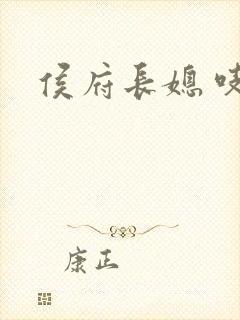 侯府長媳
康正